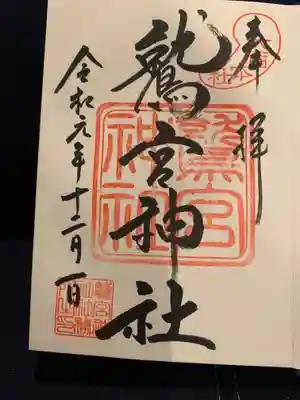 奉拝
鷲宮神社
令和元年十二月一日
鷲宮
神社